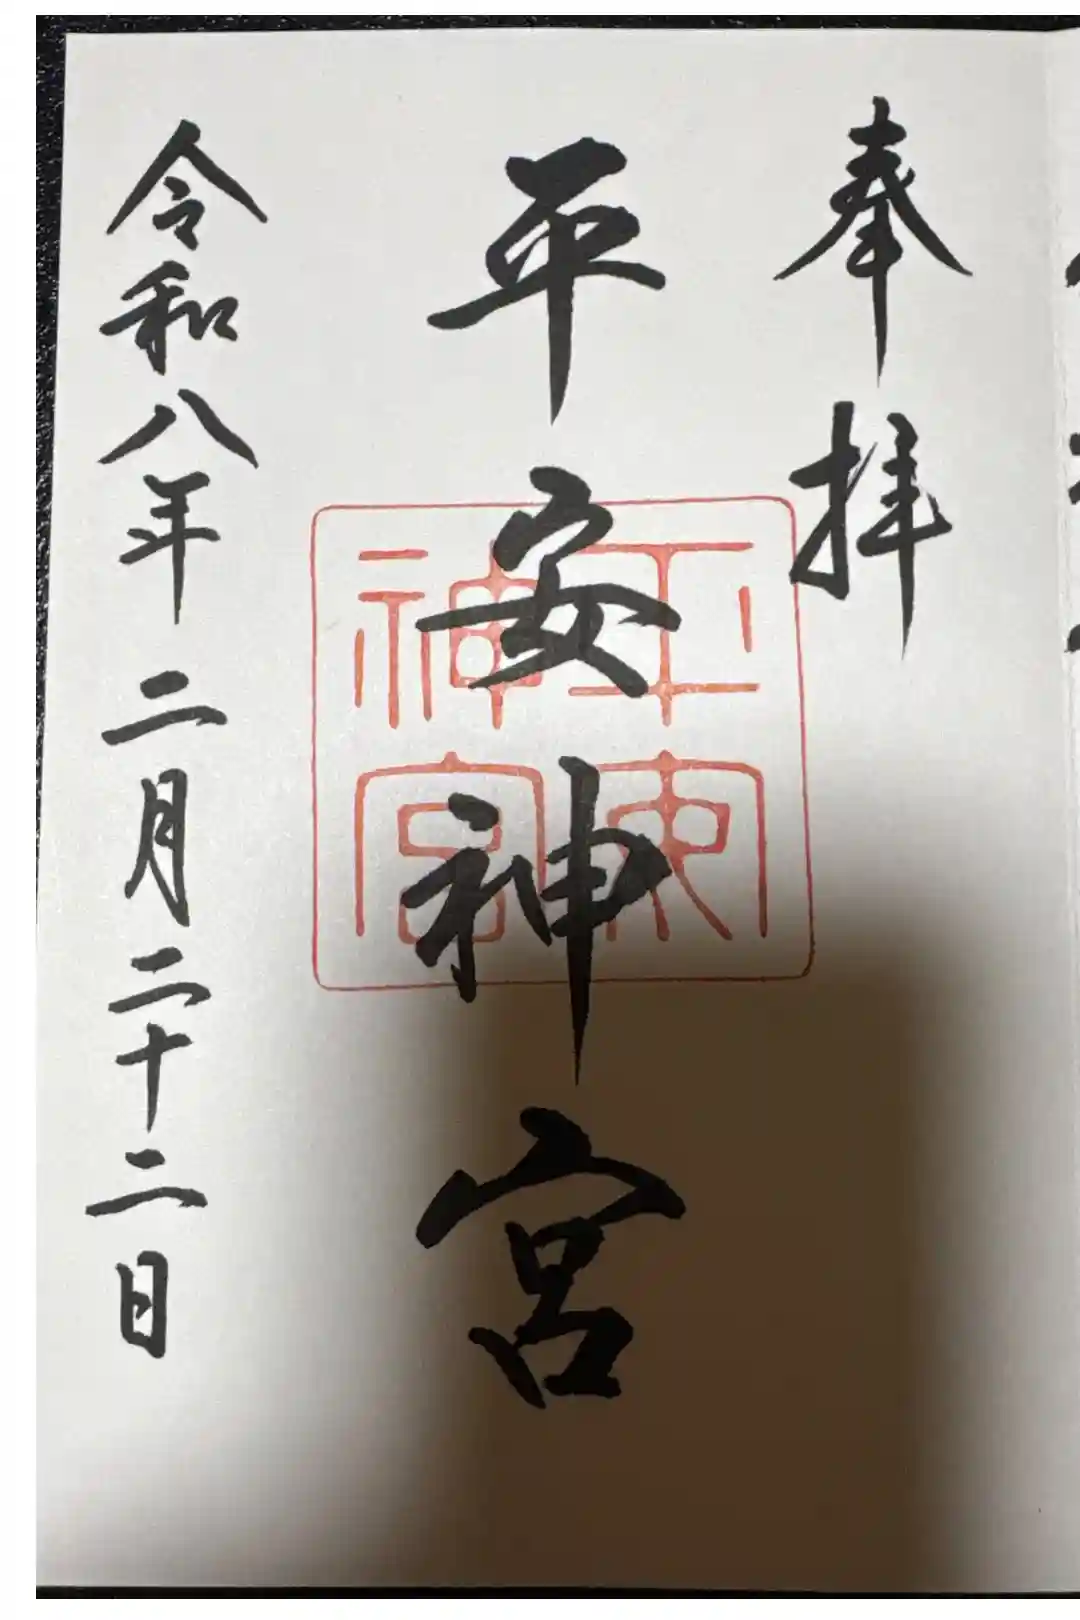 奉拝
平安神宮
平安神宮
令和八年二月二十二日